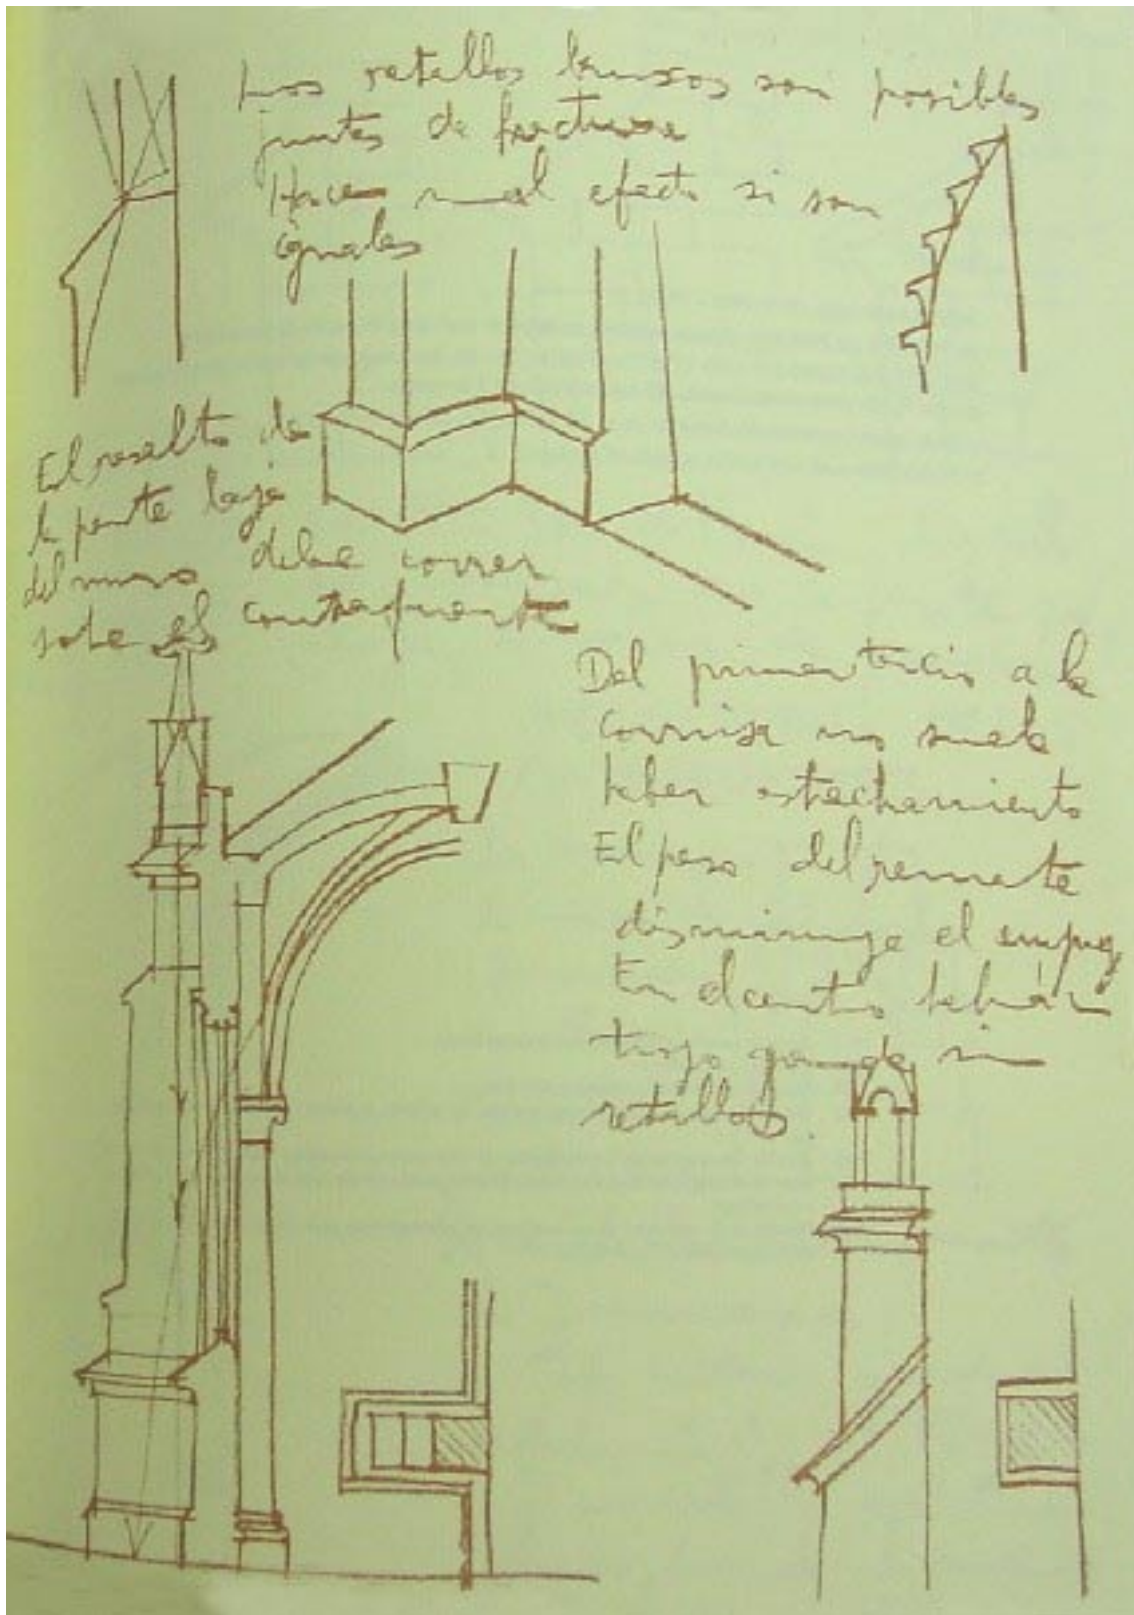 Los retallos bruscos son posibles
puntos de fractura
Hacen mal efecto si son
iguales
El resalto de
la parte baja
del muro debe correr
sobre el contrafuerte
Del primer tercio a la
cornisa no suele
haber estrechamiento
El peso del remate
disminuye el empuj
En el centro habrá un
trozo grande sin
retallos.